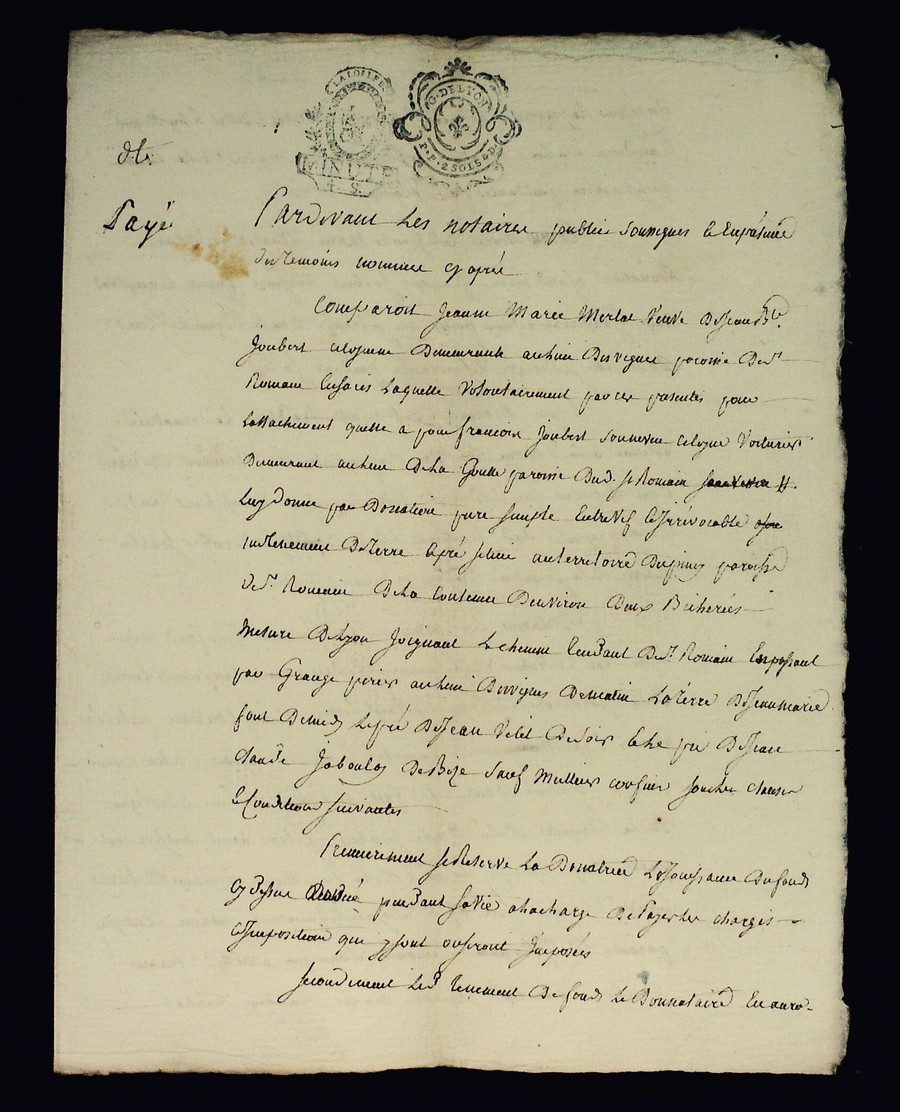 LA LOI LE R
MINUTE
4. S.
G. DE LYON
P. P. 2 SOLS 4 D
Payé
Pardevant Les notaires publics soussignes & En présence
des temoins nommes cy après
Comparoit Jeanne Marie Merlat Veuve De Jean Bte.
Joubert citoyenne Demeurante au lieu Des vignes paroisse De st
Romain Laquelle Volontairement par ces presentes pour
Lattachement quelle a pour francois Joubert son neveu citoyen Voiturier
Demeurant au lieu De La Goutte paroisse Dud. st Romain
Luy donne par Donation pure simple Entrevif & irrévocable
un tenement De terre & pré situé au territoire Du paroisse
De st. Romain De La Contenue Denviron Deux Bicherées
Mesure De Lyon Joignant Le chemin tendant De st. Romain En passant
par Grange au lieu Des vignes De matin La terre De Jean marie
font De midy Le pré De Jean De soir & le pré De Jean
claude De Bize sauf Meilleurs confins sous les clauses
& Conditions suivantes
Premièrement se Reserve La Donatrice La Jouissance Du fond
cy Dessus Donné pendant sa vie a la charge De Payer les charges
& Impositions qui y sont ou seront Imposées
secondement Led. tenement De fond Le Donnataire En aura